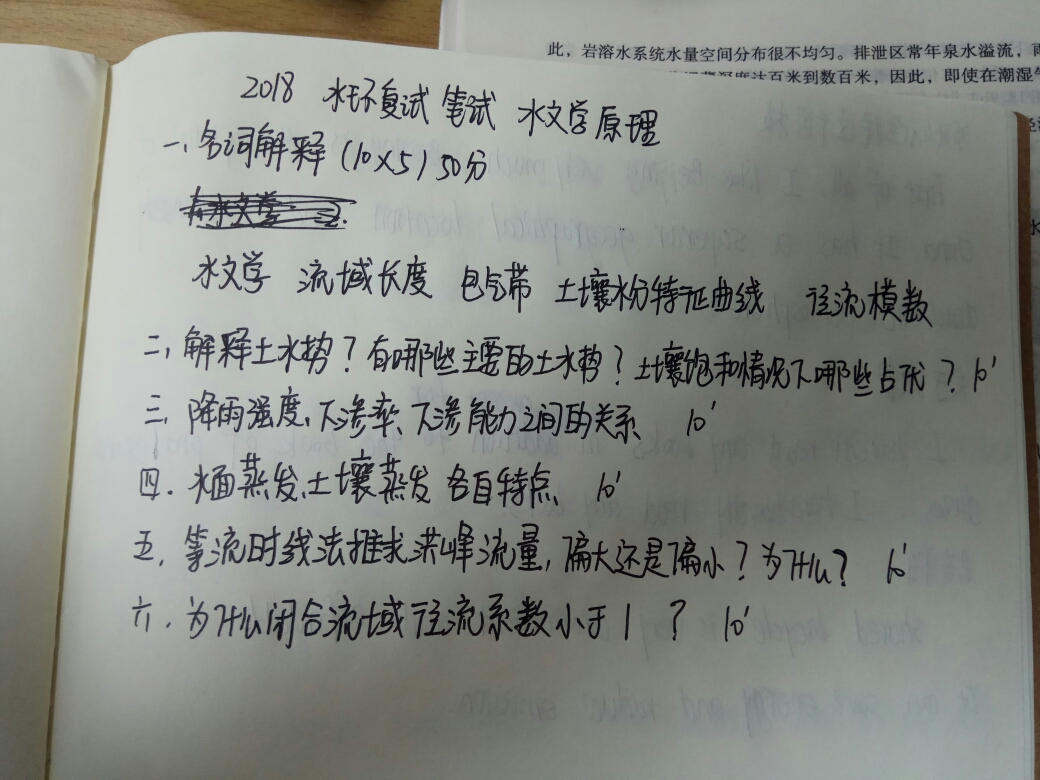 此，岩溶水系统水量空间分布很不均匀。排泄区常年泉水溢流，雨
度达百米到数百米，因此，即使在潮湿气
2018 水环复试 笔试 水文学原理
一、名词解释（10×5）50分
水文学 流域长度 包气带 土壤水份特征曲线 径流模数
二、解释土水势？有哪些主要的土水势？土壤饱和情况下哪些占优？10'
三、降雨强度、下渗率、下渗能力之间的关系 10'
四．水面蒸发、土壤蒸发 各自特点、10'
五．等流时线法推求洪峰流量，偏大还是偏小？为什么？ 10'
六．为什么闭合流域径流系数小于1？ 10'